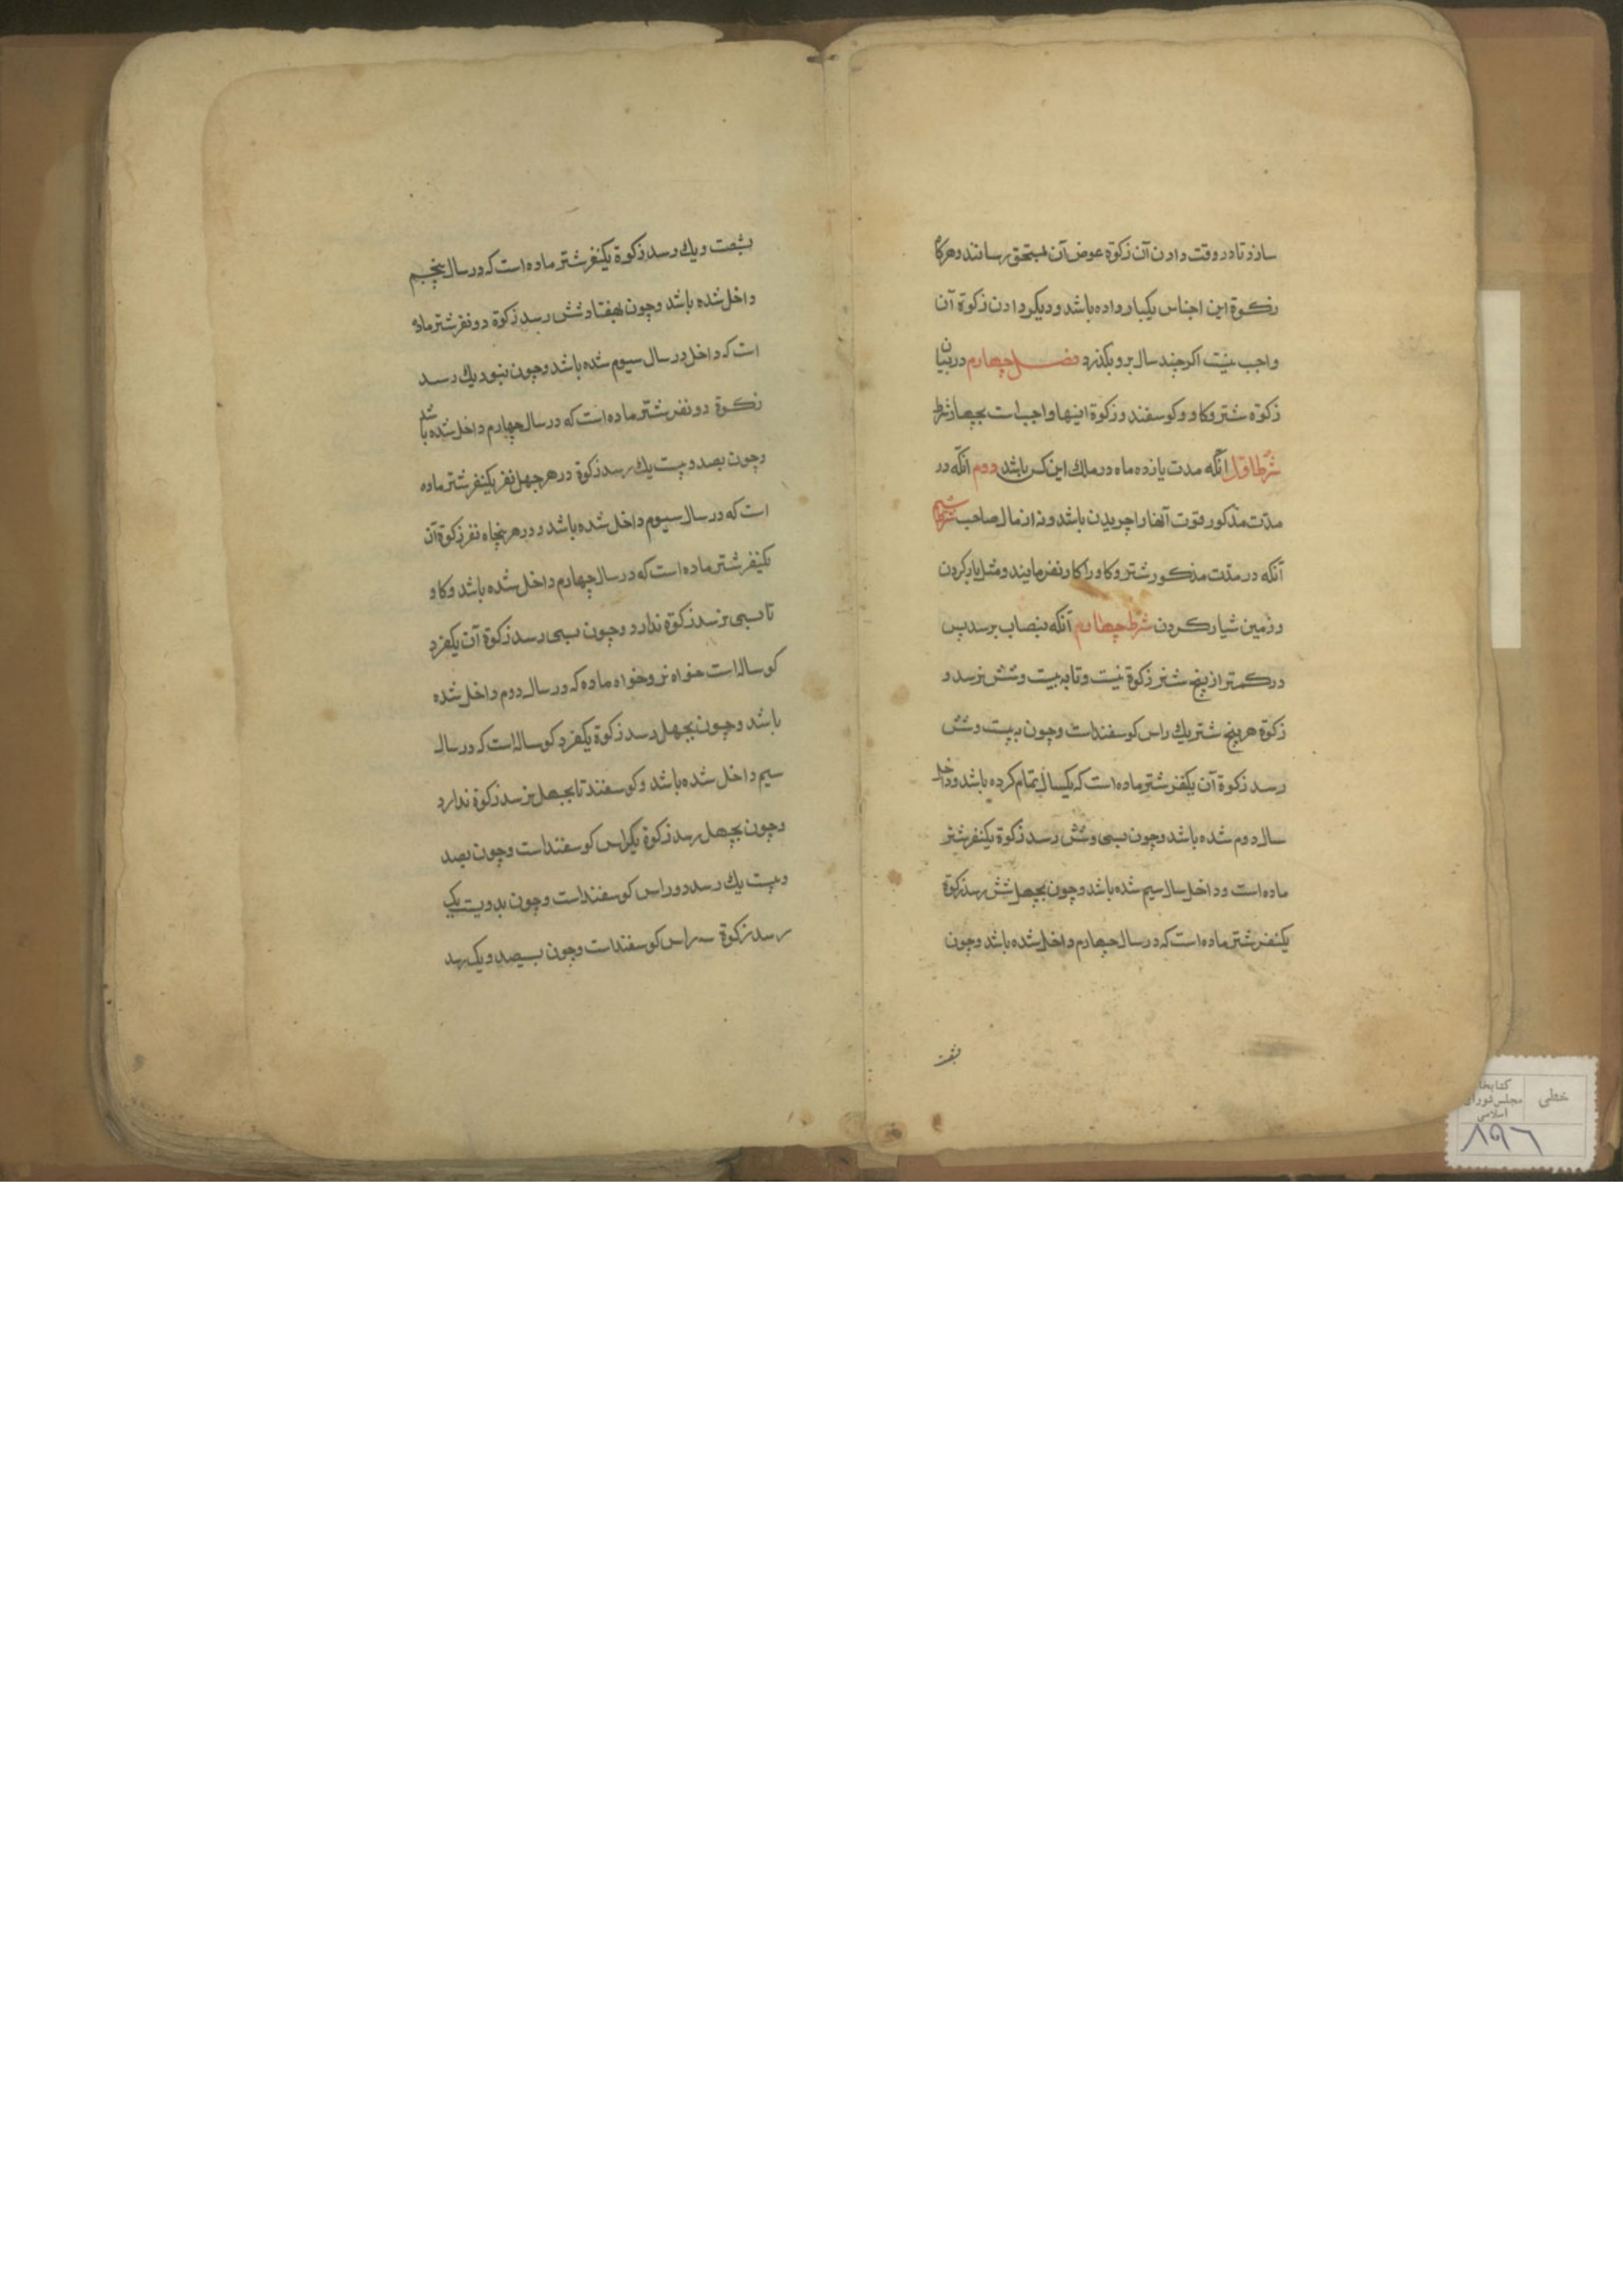 سازد تا در وقت دادن آن زکوة عوض آن بمستحق رسانند و هرکاه
زکوة این اجناس یکبار داده باشد و دیکر دادن زکوة آن
واجب نیست اکر چند سال برو بکذرد فصل چهارم در بیان
زکوة شتر و کاو و کوسفند و زکوة اینها واجب است بچهار شرط
شرط اول انکه مدت یازده ماه در ملک این کس باشد دوم آنکه در
مدت مذکور قوت آنها را چریدن باشد و نه از مال صاحب شرط سیم
آنکه در مدت مذکور شتر و کاو را کار نفرمایند و مثل بار کردن
و زمین شیار کردن شرط چهارم آنکه بنصاب برسد پس
در کمتر از پنج شتر زکوة نیست و تا به بیست و شش نرسد و
زکوة هر پنج شتر یک راس کوسفند است و چون به بیست و شش
رسد زکوة آن یکنفر شتر ماده است که یکسال تمام کرده باشد و داخل
سال دوم شده باشد و چون بسی و شش رسد زکوة یکنفر شتر
ماده است و داخل سال سیم شده باشد و چون بچهل شش رسد زکوة
یکنفر شتر ماده است که در سال چهارم داخل شده باشد و چون
بشصت
بشصت و یک رسد زکوة یکنفر شتر ماده است که در سال پنجم
داخل شده باشد و چون بهفتاد شش رسد زکوة دو نفر شتر ماده
است که داخل در سال سیوم شده باشد و چون بنود یک رسد
زکوة دو نفر شتر ماده است که در سال چهارم داخل شده باشد
و چون بصد و بیست یک رسد زکوة در هر چهل نفر یکنفر شتر ماده
است که در سال سیوم داخل شده باشد و در هر پنجاه نفر زکوة آن
یکنفر شتر ماده است که در سال چهارم داخل شده باشد و کاو
تا بسی نرسد زکوة ندارد و چون بسی رسد زکوة آن یکفرد
کوساله است خواه نر و خواه ماده که در سال دوم داخل شده
باشد و چون بچهل رسد زکوة یکفرد کوساله است که در سال
سیم داخل شده باشد و کوسفند تا بچهل نرسد زکوة ندارد
و چون بچهل رسد زکوة یکراس کوسفند است و چون بصد
و بیست یک رسد دو راس کوسفند است و چون بدویست یک
رسد زکوة سه راس کوسفند است و چون بسیصد و یک رسد
خطی
کتابخا
مجلس شورای
اسلامی
۸۹۶